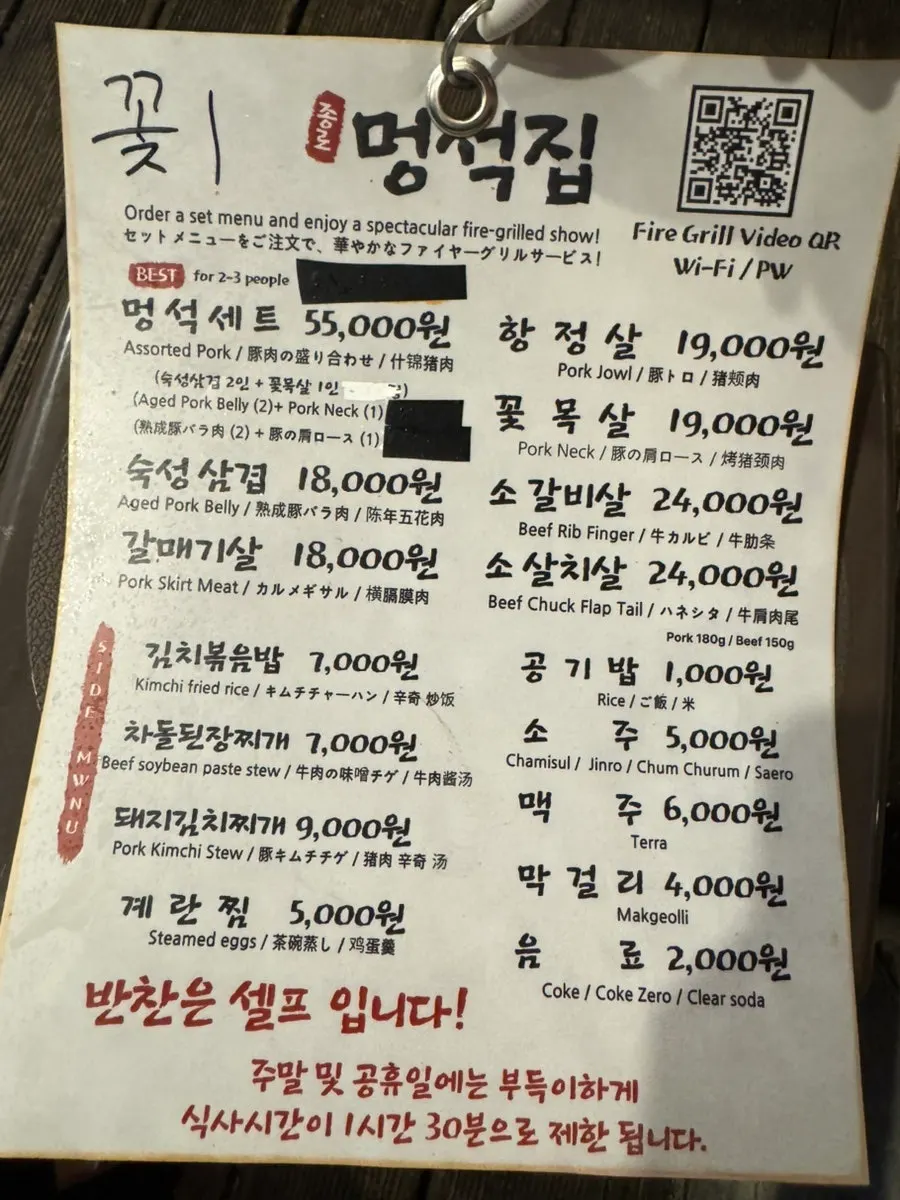 꽃 1
종로
멍석집
Order a set menu and enjoy a spectacular fire-grilled show!
セットメニューをご注文で、華やかなファイヤーグリルサービス!
Fire Grill Video QR
Wi-Fi / PW
BEST for 2-3 people
멍석세트 55,000원
Assorted Pork / 豚肉の盛り合わせ / 什锦猪肉
(숙성삼겹 2인 + 꽃목살 1인
(Aged Pork Belly (2)+ Pork Neck (1)
(熟成豚バラ肉 (2) + 豚の肩ロース (1)
숙성삼겹 18,000원
Aged Pork Belly / 熟成豚バラ肉 / 陈年五花肉
갈매기살 18,000원
Pork Skirt Meat / カルメギサル / 横膈膜肉
항정살 19,000원
Pork Jowl / 豚トロ / 猪颊肉
꽃목살 19,000원
Pork Neck / 豚の肩ロース / 烤猪颈肉
소갈비살 24,000원
Beef Rib Finger / 牛カルビ / 牛肋条
소살치살 24,000원
Beef Chuck Flap Tail / ハネシタ / 牛肩肉尾
Pork 180g / Beef 150g
SIDE MWNU
김치볶음밥 7,000원
Kimchi fried rice / キムチチャーハン / 辛奇 炒饭
차돌된장찌개 7,000원
Beef soybean paste stew / 牛肉の味噌チゲ / 牛肉酱汤
돼지김치찌개 9,000원
Pork Kimchi Stew / 豚キムチチゲ / 猪肉 辛奇 汤
계란찜 5,000원
Steamed eggs / 茶碗蒸し / 鸡蛋羹
공기밥 1,000원
Rice / ご飯 / 米
소주 5,000원
Chamisul / Jinro / Chum Churum / Saero
맥주 6,000원
Terra
막걸리 4,000원
Makgeolli
음료 2,000원
Coke / Coke Zero / Clear soda
반찬은 셀프 입니다!
주말 및 공휴일에는 부득이하게
식사시간이 1시간 30분으로 제한 됩니다.